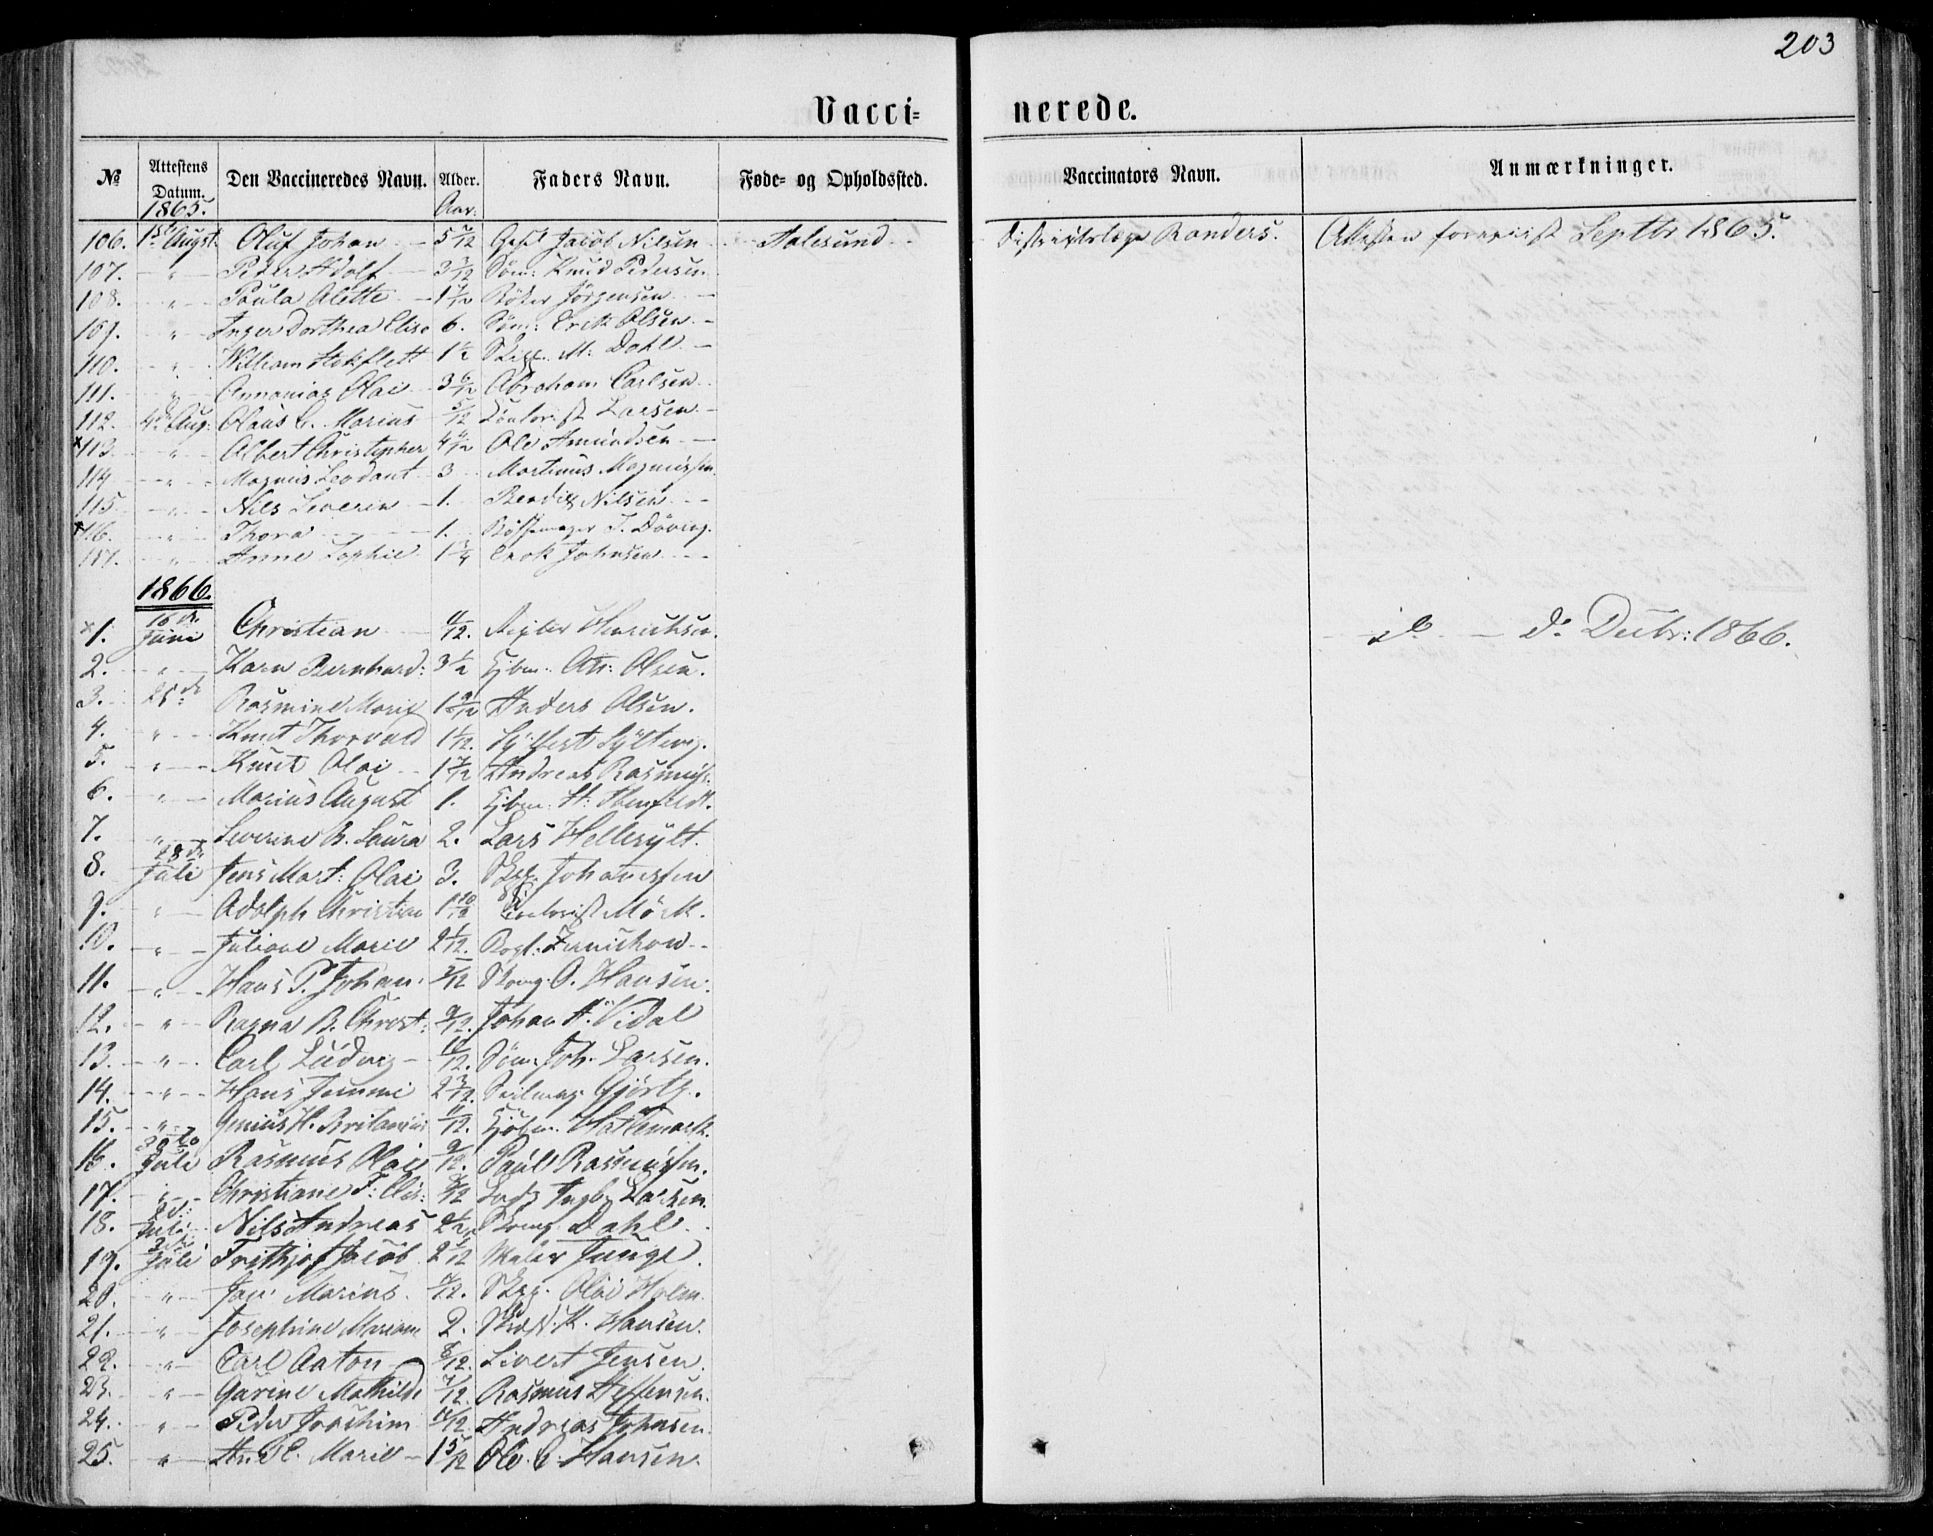 203
Vacci=
nerede.
№ Attestens Datum. Den Vaccineredes Navn. Alder. Faders Navn. Føde= og Opholdssted. Vaccinators Navn. Anmærkninger.
1865. Aar.
106. 1ste Augst Oluf Johan 5 Jacob Nilsen Aalesund Distriktslæge Randers. Attesten forevist Septbr 1865.
107. " Peder Adolf 3 3/12 Søm: Knud Pedersen
108. " Paula Alette 1 Bøker Jørgensen
109. " Inger Dorthea Elise 6. Søm: Erik Olsen
110. " William Stokflett 1½ M: Dahl
111. " Annanias Olai 3 6/12 Abraham Carlsen
112. 4de Aug: Olaus C. Marius 5/12 Contorist Larsen
×113. " Albert Christopher 4 Ole Amundsen
114. " Magnus 3 Martinus Magnussen
115. " Nils Severin 1. Bendix Nilsen
×116. " Thora 1. Bøssemager J. Døving.
117. " Anne Sophie 1¾ Johnsen
1866.
×1. 16de Juni Christian /12. Henrichsen. do do Decbr: 1866.
2. " Karn Bernhard: 3½ Ole: Olsen.
3. 25de Rasmine Marie 1 9/12 Anders Olsen.
4. " Knut Thorvald 1 1/12. Syltevig.
5. " Knut Olai 1 7/12 Andreas Rasmuss.
6. " Marius August 1. H:
7. " Severine B. Laura 2. Lars Hellesylt.
8. 28de Juli Jens Mart: Olai 3. Johannessen
9. " Adolph Christian 1 10/12 Contorist Mörk.
10. " Juliane Marie 2 1/12. Jenichow
11. " Hans P. Johan. /12 Skomg. O. Hansen.
12. " Ragna B. Christ: 9/12. Johan A. Vidal
13. " Carl Ludvig 10/12. Søm: Joh. Larsen.
14. " Hans Jemmi 2 3/12. Seilmag.
15. " H. 11/12. Hattemark.
16. 30te Juli Rasmus Olai 9/12. Paul Rasmussen.
17. " Christiane F: Elis: /12 Lods Ingbr Larsen.
18. Juli Nils Andreas 2½ Skomg. Dahl
19. 3die Juli Frithjof Jacob 2 /12 Maler Junge.
20. " Marius. /12. Olai Holm
21. " Josephine Mariane 2. K. Hansen.
22. " Carl Anton 8/12. Sivert Jensen.
23. " Gurine Mathilde 7/12. Rasmus Steffensen.
24. " Peder Joachim /12 Andreas Johnsen.
25. " Marie 1 5/12 Ole C. Hansen.